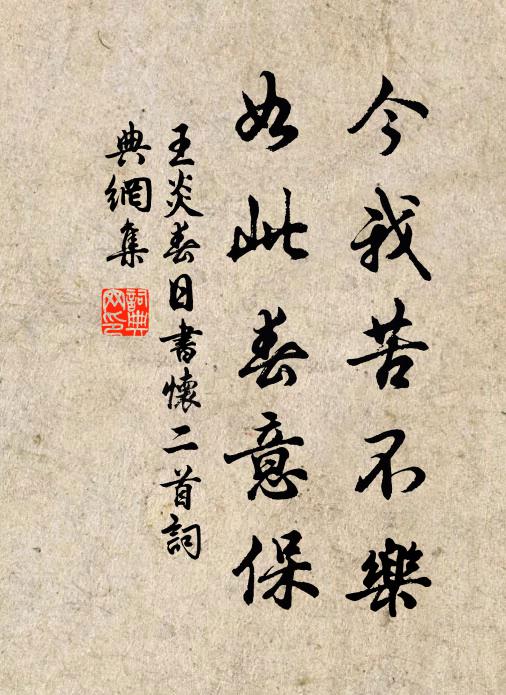 今我苦不樂
如此春意保
王炎春日書懷二首詞
典網集
詞典網印